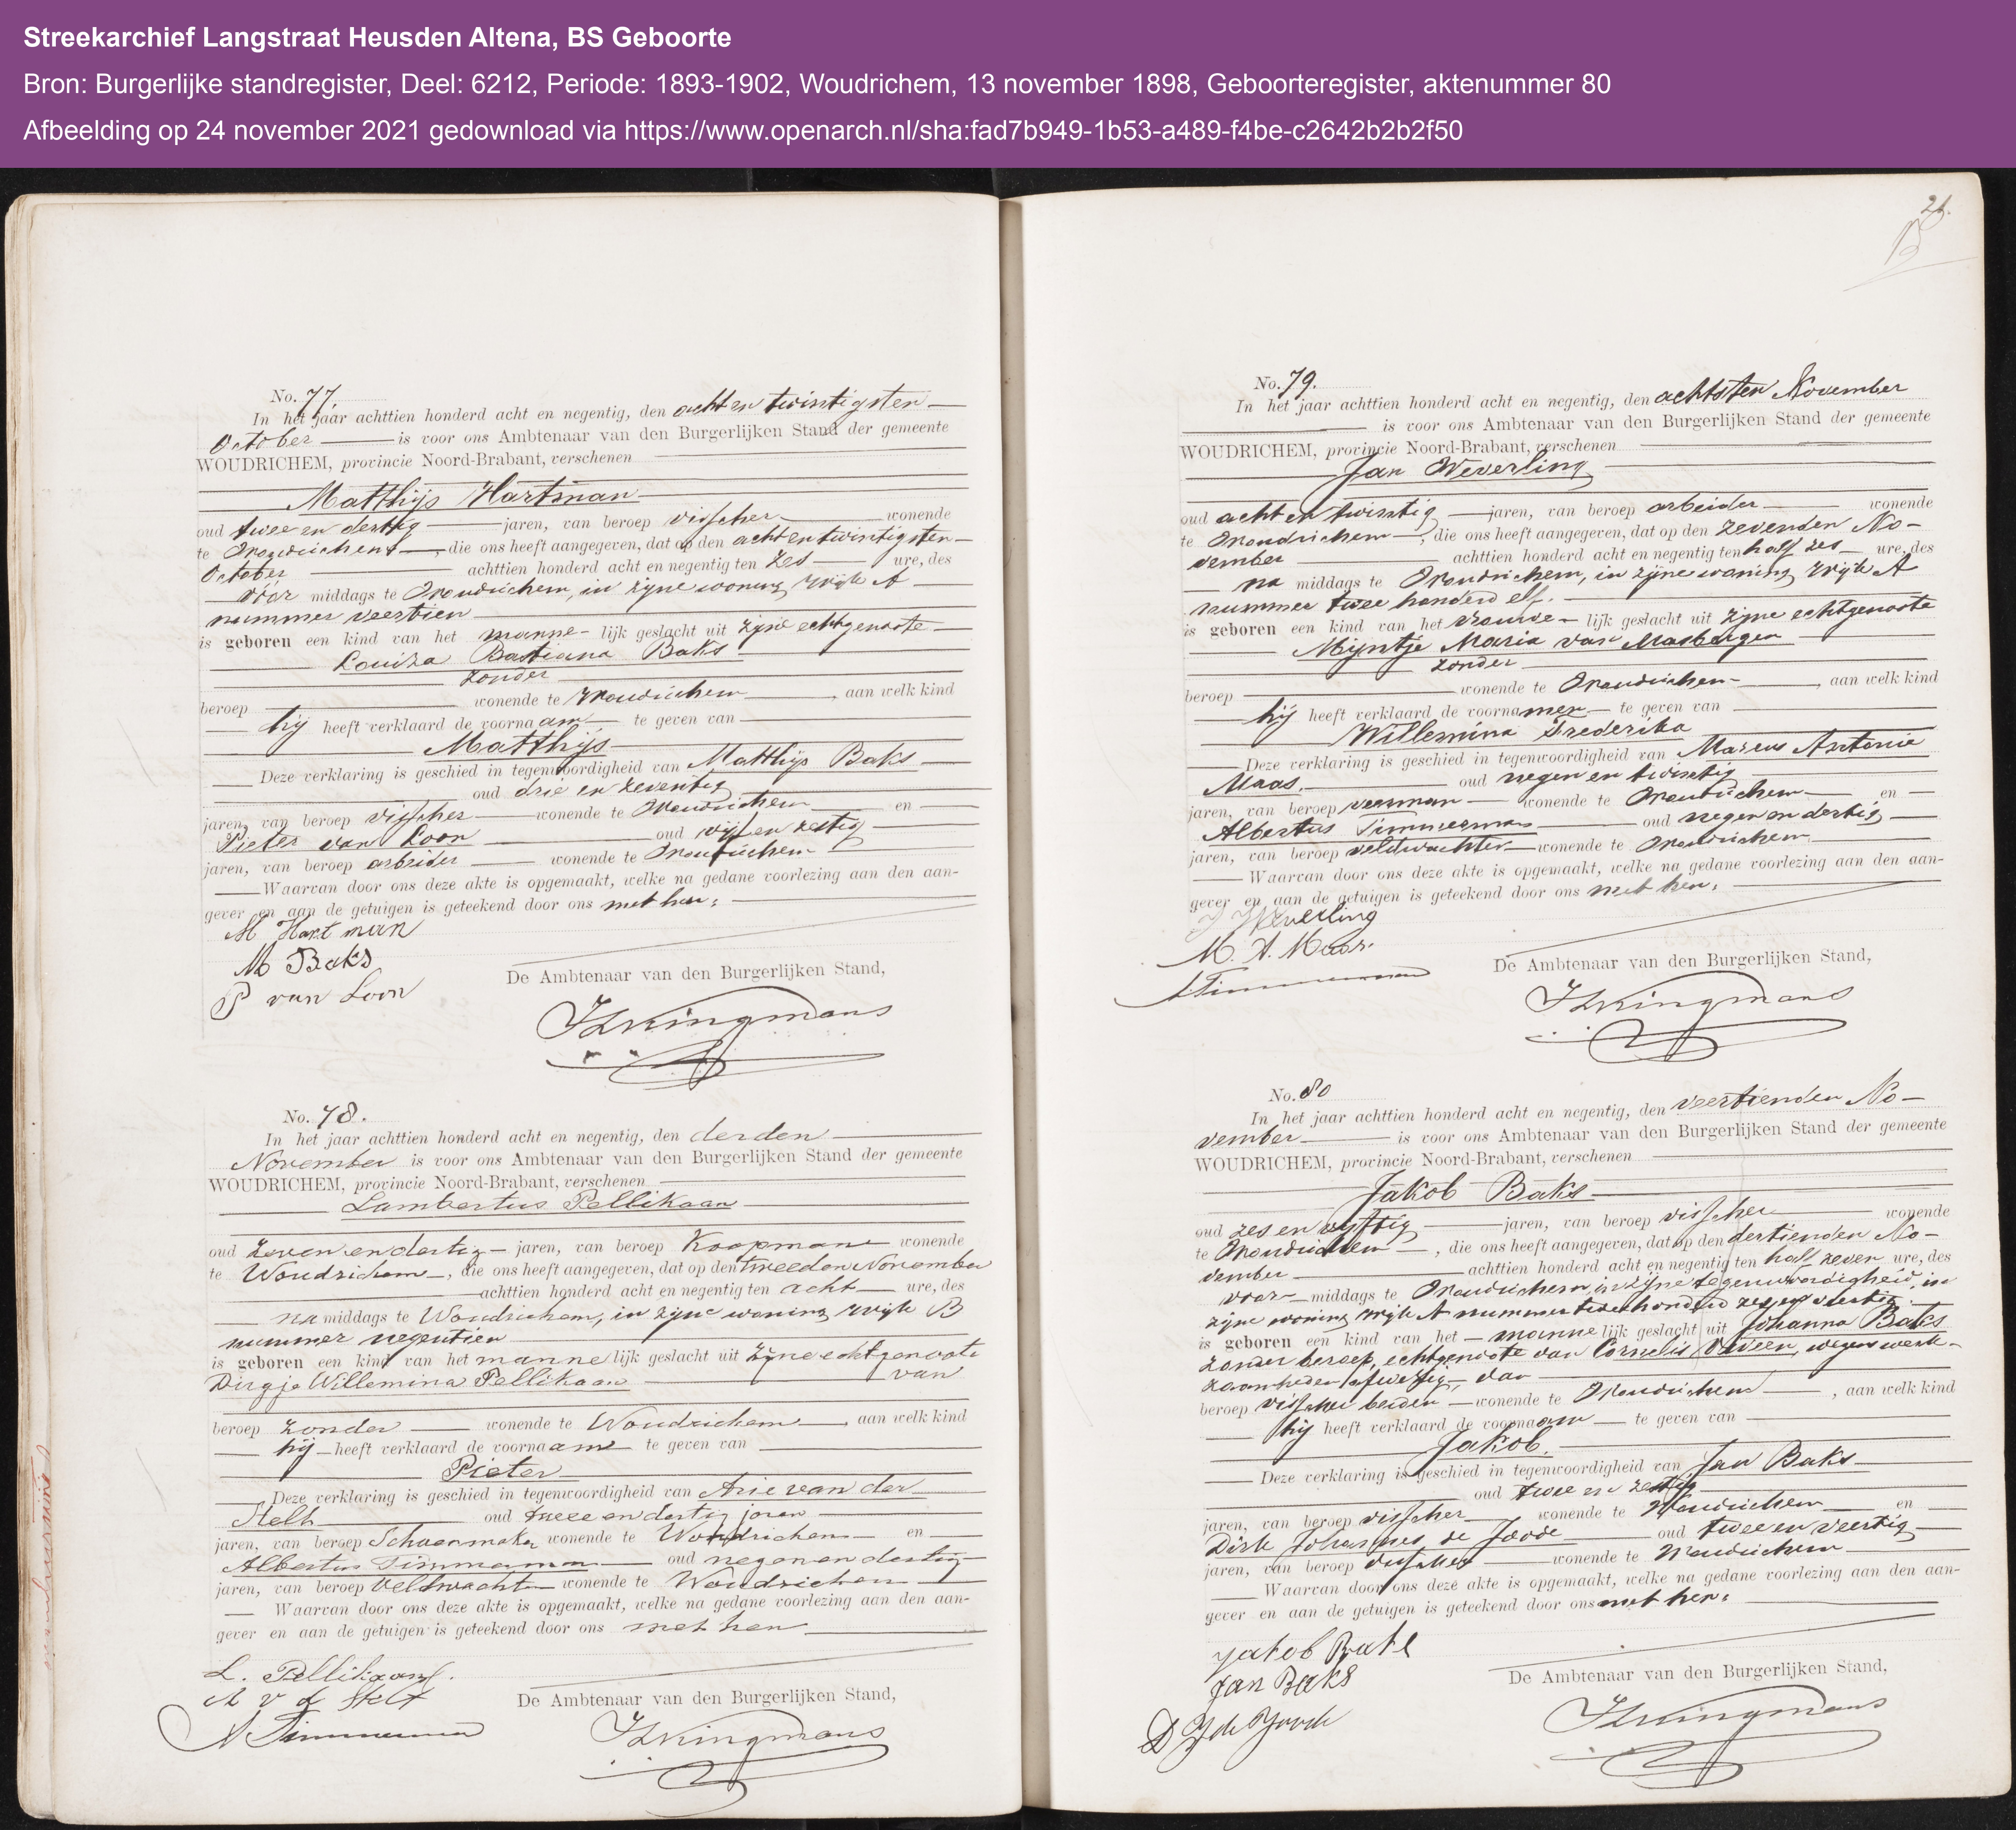 Streekarchief Langstraat Heusden Altena, BS Geboorte
Bron: Burgerlijke standregister, Deel: 6212, Periode: 1893-1902, Woudrichem, 13 november 1898, Geboorteregister, aktenummer 80
Afbeelding op 24 november 2021 gedownload via https://www.openarch.nl/sha:fad7b949-1b53-a489-f4be-c2642b2b2f50
No. 77.
In het jaar achttien honderd acht en negentig, den acht en twintigsten
October is voor ons Ambtenaar van den Burgerlijken Stand der gemeente
WOUDRICHEM, provincie Noord-Brabant, verschenen
Matthijs Hartman
oud twee en dertig jaren, van beroep visscher wonende
te Woudrichem, die ons heeft aangegeven, dat op den acht en twintigsten
October achttien honderd acht en negentig ten zes ure, des
voor middags te Woudrichem, in zijne woning wijk A
nummer veertien
is geboren een kind van het manne- lijk geslacht uit zijne echtgenoote
Louiza Bastiana Baks
zonder
beroep wonende te Woudrichem, aan welk kind
hij heeft verklaard de voornaam te geven van
Matthijs
Deze verklaring is geschied in tegenwoordigheid van Matthijs Baks
oud drie en zeventig
jaren, van beroep visscher wonende te Woudrichem en
Pieter van Loon oud vijf en zestig
jaren, van beroep arbeider wonende te Woudrichem
Waarvan door ons deze akte is opgemaakt, welke na gedane voorlezing aan den aan-
gever en aan de getuigen is geteekend door ons met hen.
M Hartman
M Baks
P van Loon
De Ambtenaar van den Burgerlijken Stand,
No. 78.
In het jaar achttien honderd acht en negentig, den derden
November is voor ons Ambtenaar van den Burgerlijken Stand der gemeente
WOUDRICHEM, provincie Noord-Brabant, verschenen
Lambertus Pellikaan
oud zeven en dertig jaren, van beroep Koopman wonende
te Woudrichem, die ons heeft aangegeven, dat op den tweeden November
achttien honderd acht en negentig ten acht ure, des
na middags te Woudrichem, in zijne woning wijk B
nummer negentien
is geboren een kind van het manne lijk geslacht uit zijne echtgenoote
Dirgje Willemina Pellikaan van
beroep zonder wonende te Woudrichem, aan welk kind
hij heeft verklaard de voornaam te geven van
Pieter
Deze verklaring is geschied in tegenwoordigheid van Arie van der
Stelt oud twee en dertig jaren
jaren, van beroep Schoenmaker wonende te Woudrichem en
Albertus Timmerman oud negen en dertig
jaren, van beroep Veldwacht wonende te Woudrichem
Waarvan door ons deze akte is opgemaakt, welke na gedane voorlezing aan den aan-
gever en aan de getuigen is geteekend door ons met hen
L. Pellikaan
A v d Stelt
A Timmerman
De Ambtenaar van den Burgerlijken Stand,
21.
No. 79.
In het jaar achttien honderd acht en negentig, den achtsten November
is voor ons Ambtenaar van den Burgerlijken Stand der gemeente
WOUDRICHEM, provincie Noord-Brabant, verschenen
Jan Weverling
oud acht en twintig jaren, van beroep arbeider wonende
te Woudrichem, die ons heeft aangegeven, dat op den zevenden No-
vember achttien honderd acht en negentig ten half zes ure, des
na middags te Woudrichem, in zijne woning wijk A
nummer twee honderd elf.
is geboren een kind van het vrouwe- lijk geslacht uit zijne echtgenoote
Mijntje Maria van
zonder
beroep wonende te Woudrichem, aan welk kind
hij heeft verklaard de voornamen te geven van
Willemina Frederika
Deze verklaring is geschied in tegenwoordigheid van Marcus Antonie
Maas. oud negen en twintig
jaren, van beroep veerman wonende te Woudrichem en
Albertus Timmerman oud negen en dertig
jaren, van beroep veldwachter wonende te Woudrichem
Waarvan door ons deze akte is opgemaakt, welke na gedane voorlezing aan den aan-
gever en aan de getuigen is geteekend door ons met hen.
J Weverling
M. A. Maas.
A Timmerman
De Ambtenaar van den Burgerlijken Stand,
No. 80
In het jaar achttien honderd acht en negentig, den veertienden No-
vember is voor ons Ambtenaar van den Burgerlijken Stand der gemeente
WOUDRICHEM, provincie Noord-Brabant, verschenen
Jakob Baks
oud zes en vijftig jaren, van beroep visscher wonende
te Woudrichem, die ons heeft aangegeven, dat op den dertienden No-
vember achttien honderd acht en negentig ten half zeven ure, des
voor- middags te Woudrichem, in zijne tegenwoordigheid, in
zijne woning wijk A nummer twee honderd zes en veertig
is geboren een kind van het manne lijk geslacht uit Johanna Baks
zonder beroep, echtgenoote van Cornelis, wegens werk-
zaamheden afwezig, van
beroep visscher beiden wonende te Woudrichem, aan welk kind
hij heeft verklaard de voornaam te geven van
Jakob.
Deze verklaring is geschied in tegenwoordigheid van Jan Baks
oud twee en zestig
jaren, van beroep visscher wonende te Woudrichem en
Dirk Johannes de Joode oud twee en veertig
jaren, van beroep visscher wonende te Woudrichem
Waarvan door ons deze akte is opgemaakt, welke na gedane voorlezing aan den aan-
gever en aan de getuigen is geteekend door ons met hen.
Jakob Baks
Jan Baks
D J de Joode
De Ambtenaar van den Burgerlijken Stand,